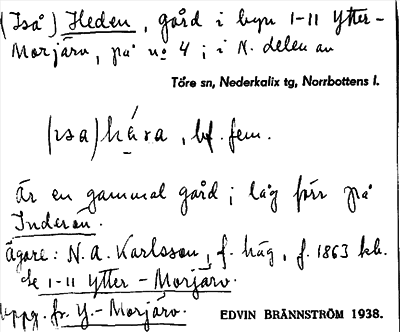 (Iså) Heden, gård i byn 1-11 Ytter-
Morjärv, på nº 4; i N. delen av
Töre sn, Nederkalix tg, Norrbottens l.
(ısa) , bf. fem.
Är en gammal gård; låg förr på
Inderön.
Ägare: N. A. Karlsson, f. häg, f. 1863 hb.
se 1-11 Ytter-Morjärv.
Uppg. fr. Y.-Morjärv.
EDVIN BRÄNNSTRÖM 1938.